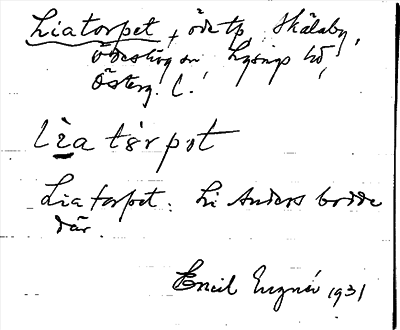 Liatorpet, öde tp, Skälaby,
Ödeshög sn, Lysings hd,
Österg. l.
lìa tòrpət
Liatorpet. Li Anders bodde
där.
Emil 1931